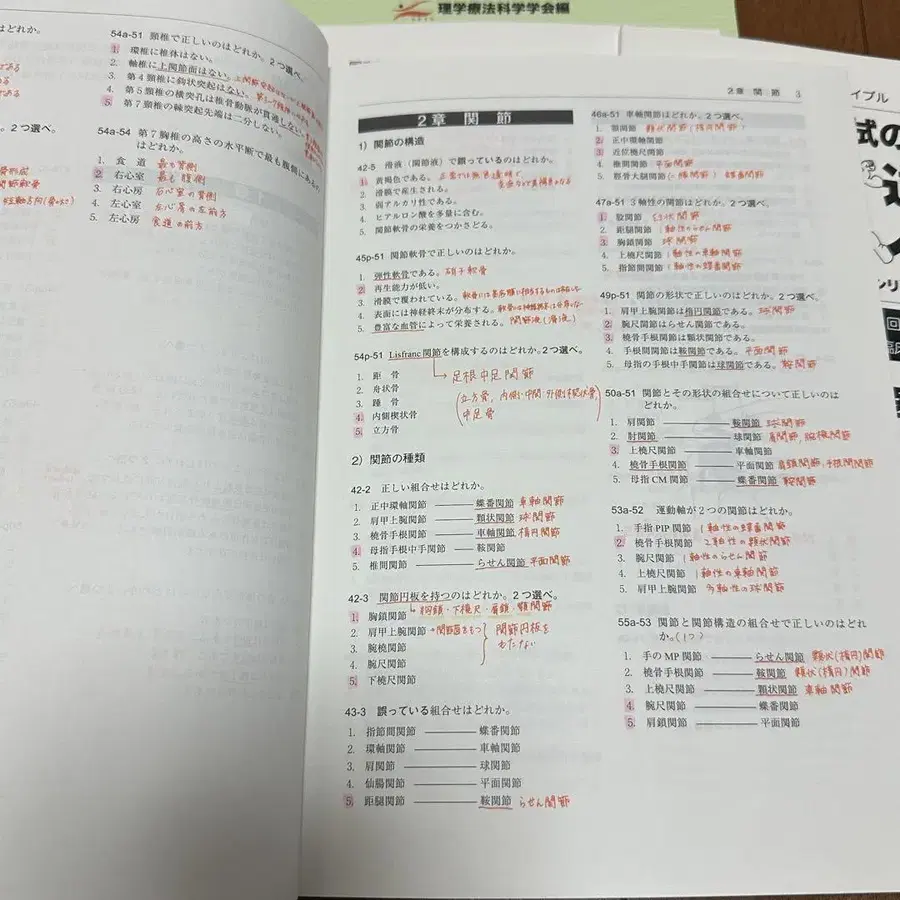 理学療法科学学会編
はどれか。
54a-51 頸椎で正しいのはどれか。2つ選べ。
1. 環椎に椎体はない。
2. 軸椎に上関節面はない。
3. 第4頸椎に鉤状突起はない。
4. 第5頸椎の横突孔は椎骨動脈が貫通しない。
5. 第7頸椎の棘突起先端は二分しない。
。2つ選べ。
54a-54 第7胸椎の高さの水平断で最も腹側にあるの
はどれか。
1. 食道 最も背側
2. 右心室 最も腹側
3. 右心房 右心室の背側
4. 左心室 左心房の左前方
5. 左心房 食道の前方
2章 関節 3
2章 関節
1) 関節の構造
42-5 滑液(関節液)で誤っているのはどれか。
1. 黄褐色である。
2. 滑膜で産生される。
3. 弱アルカリ性である。
4. ヒアルロン酸を多量に含む。
5. 関節軟骨の栄養をつかさどる。
45p-51 関節軟骨で正しいのはどれか。
1. 弾性軟骨である。硝子軟骨
2. 再生能力が低い。
3. 滑膜で覆われている。
4. 表面には神経終末が分布する。
5. 豊富な血管によって栄養される。関節液(滑液)
54p-51 Lisfranc関節を構成するのはどれか。2つ選べ。
→足根中足関節
1. 距骨
2. 舟状骨
3. 踵骨
4. 内側楔状骨
5. 立方骨
(立方骨、内側・中間・外側楔状骨、
中足骨)
2) 関節の種類
42-2 正しい組合せはどれか。
1. 正中環軸関節 ――― 蝶番関節 車軸関節
2. 肩甲上腕関節 ――― 顆状関節 球関節
3. 橈骨手根関節 ――― 車軸関節 楕円関節
4. 母指手根中手関節 ――― 鞍関節
5. 椎間関節 ――― らせん関節 平面関節
42-3 関節円板を持つのはどれか。2つ選べ。
胸鎖・下橈尺・肩鎖・顎関節
1. 胸鎖関節
2. 肩甲上腕関節 →関節唇をもつ
3. 腕橈関節
4. 腕尺関節
5. 下橈尺関節
関節円板を
もたない
43-3 誤っている組合せはどれか。
1. 指節間関節 ――― 蝶番関節
2. 環軸関節 ――― 車軸関節
3. 肩関節 ――― 球関節
4. 仙腸関節 ――― 平面関節
5. 距腿関節 ――― 鞍関節 らせん関節
46a-51 車軸関節はどれか。2つ選べ。
1. 顎関節 顆状関節(楕円関節)
2. 正中環軸関節
3. 近位橈尺関節
4. 椎間関節 平面関節
5. 脛骨大腿関節 蝶番関節
47a-51 3軸性の関節はどれか。2つ選べ。
1. 股関節 臼状関節
2. 距腿関節 1軸性のらせん関節
3. 胸鎖関節 球関節
4. 上橈尺関節 1軸性の車軸関節
5. 指節間関節 1軸性の蝶番関節
49p-51 関節の形状で正しいのはどれか。2つ選べ。
1. 肩甲上腕関節は楕円関節である。球関節
2. 腕尺関節はらせん関節である。
3. 橈骨手根関節は顆状関節である。
4. 手根間関節は鞍関節である。平面関節
5. 母指の手根中手関節は球関節である。鞍関節
50a-51 関節とその形状の組合せについて正しいのは
どれか。
1. 肩関節 ――― 鞍関節 球関節
2. 肘関節 ――― 球関節
3. 上橈尺関節 ――― 車軸関節
4. 橈骨手根関節 ――― 平面関節
5. 母指CM関節 ――― 蝶番関節 鞍関節
53a-52 運動軸が2つの関節はどれか。
1. 手指PIP関節 1軸性の蝶番関節
2. 橈骨手根関節 2軸性の顆状関節
3. 腕尺関節 1軸性のらせん関節
4. 上橈尺関節 1軸性の車軸関節
5. 肩甲上腕関節 多軸性の球関節
55a-53 関節と関節構造の組合せで正しいのはどれ
か。(1つ)
1. 手のMP関節 ――― らせん関節 顆状(楕円)関節
2. 橈骨手根関節 ――― 鞍関節 顆状(楕円)関節
3. 上橈尺関節 ――― 顆状関節 車軸関節
4. 腕尺関節 ――― 蝶番関節
5. 肩鎖関節 ――― 平面関節
イブル
式の